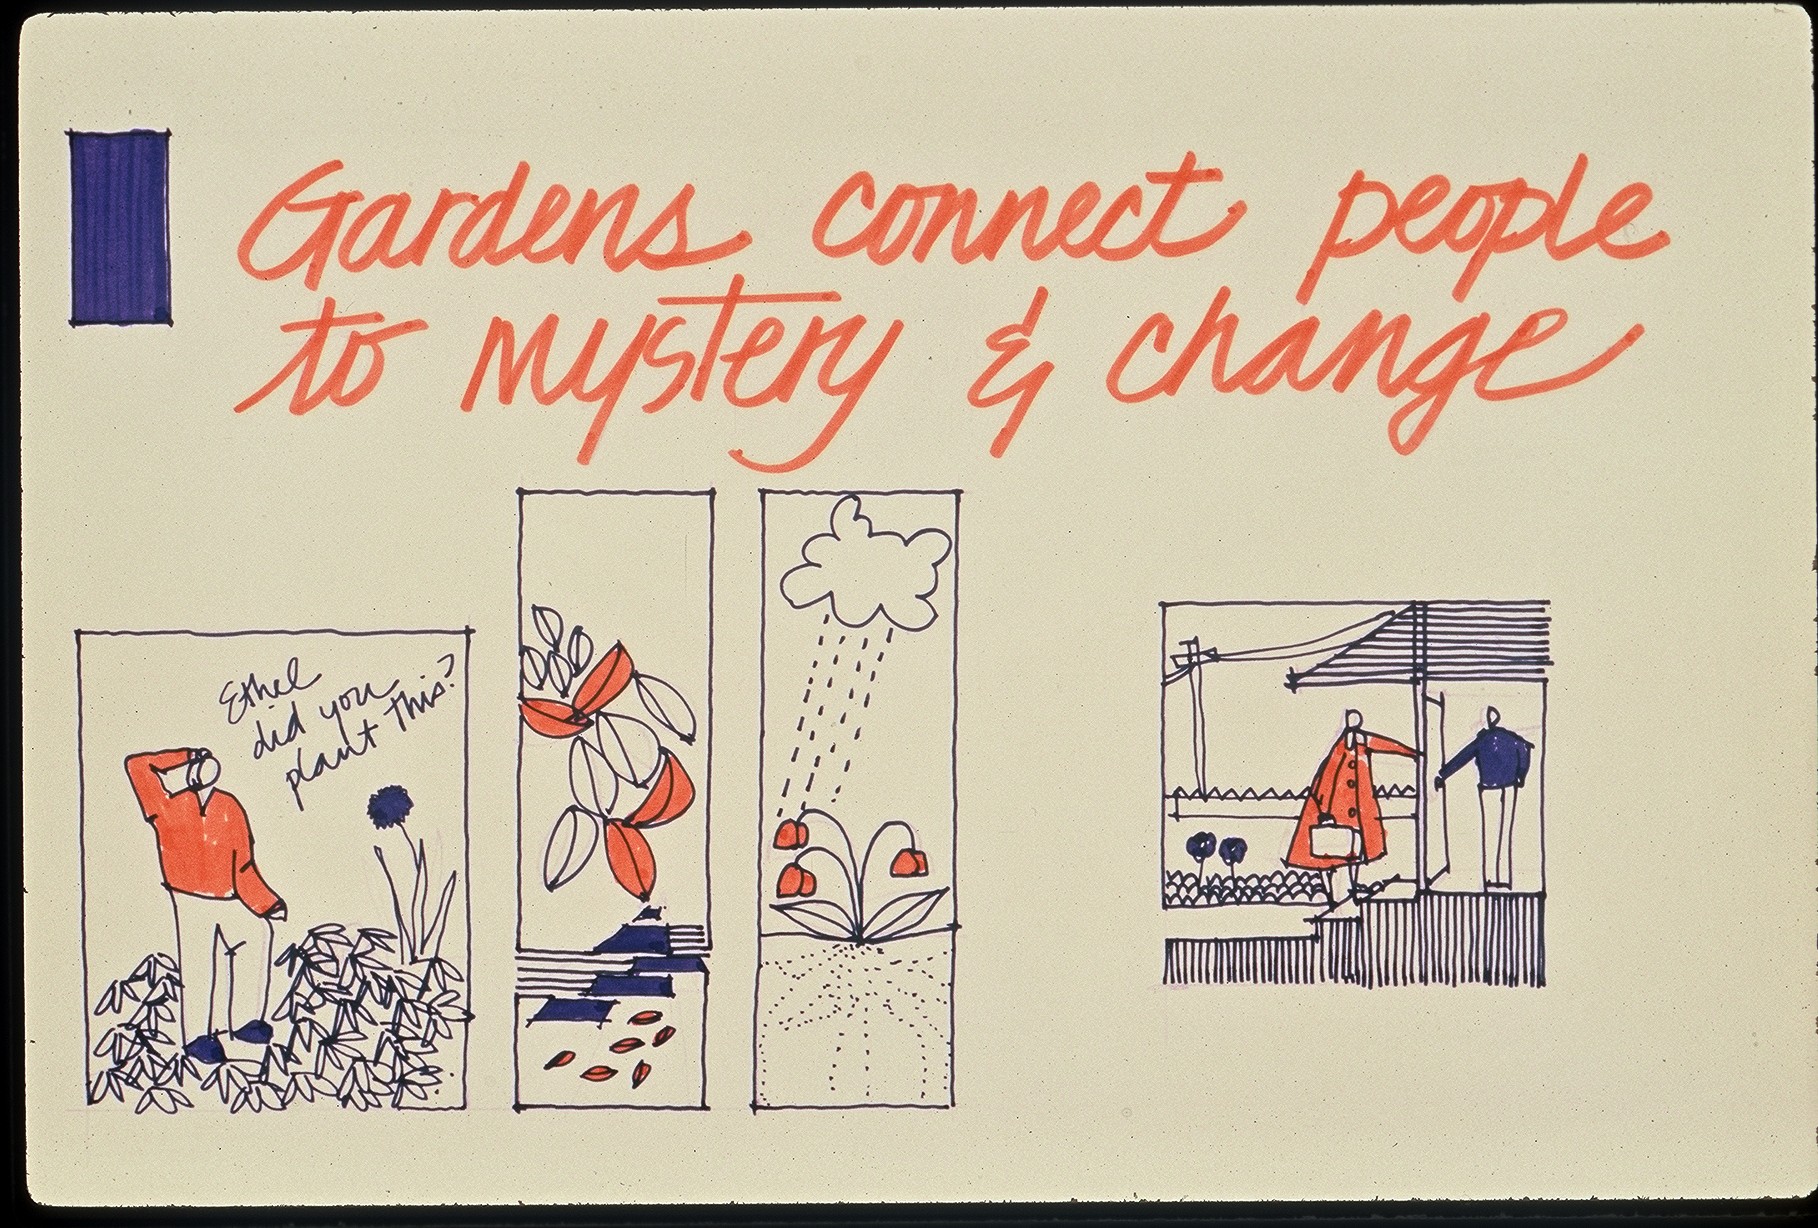 Gardens connect people
to mystery & change
Ethel
did you
plant this?